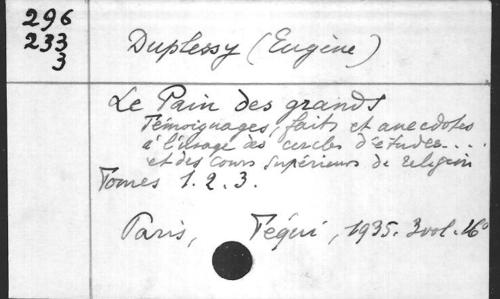 296
233
3
Duplessy (Eugène)
Le Pain des grands
Témoignages, faits et anecdotes
à l'usage des cercles d'études....
et des Cours Supérieurs de religion
Tomes 1. 2. 3.
Paris, Téqui, 1935. 3 vol. 16º